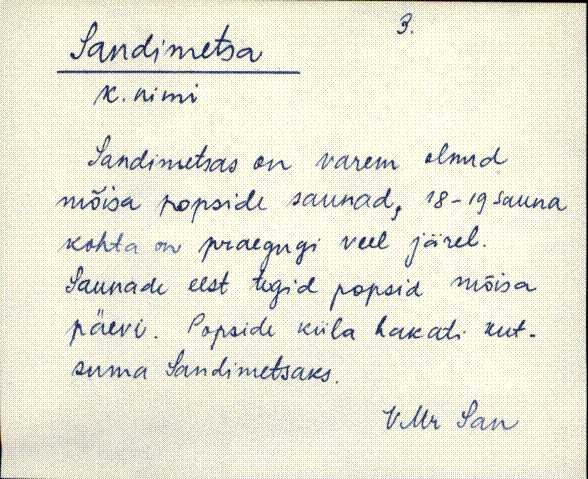 3.
Sandimetsa
k. nimi
Sandimetsas on varem olnud
mõisa popside saunad, 18-19 sauna
kohta on praegugi veel järel.
Saunade eest tegid popsid mõisa
päevi. Popside küla hakati kut-
suma Sandimetsaks.
VMr San